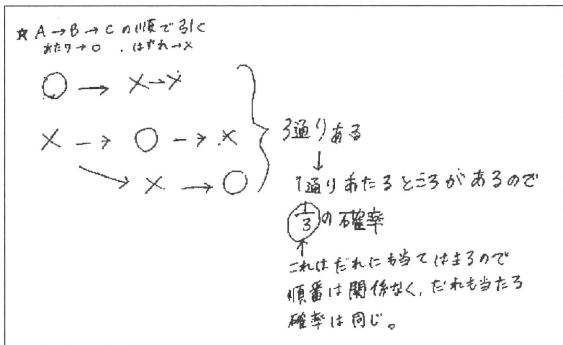 ☆A→B→Cの順で引く
あたり→○、はずれ→×
○→×→×
×→○→×
→×→○
3通りある
↓
1通りあたるところがあるので
1/3の確率
↑
これはだれにも当てはまるので
順番は関係なく、だれも当たる
確率は同じ。